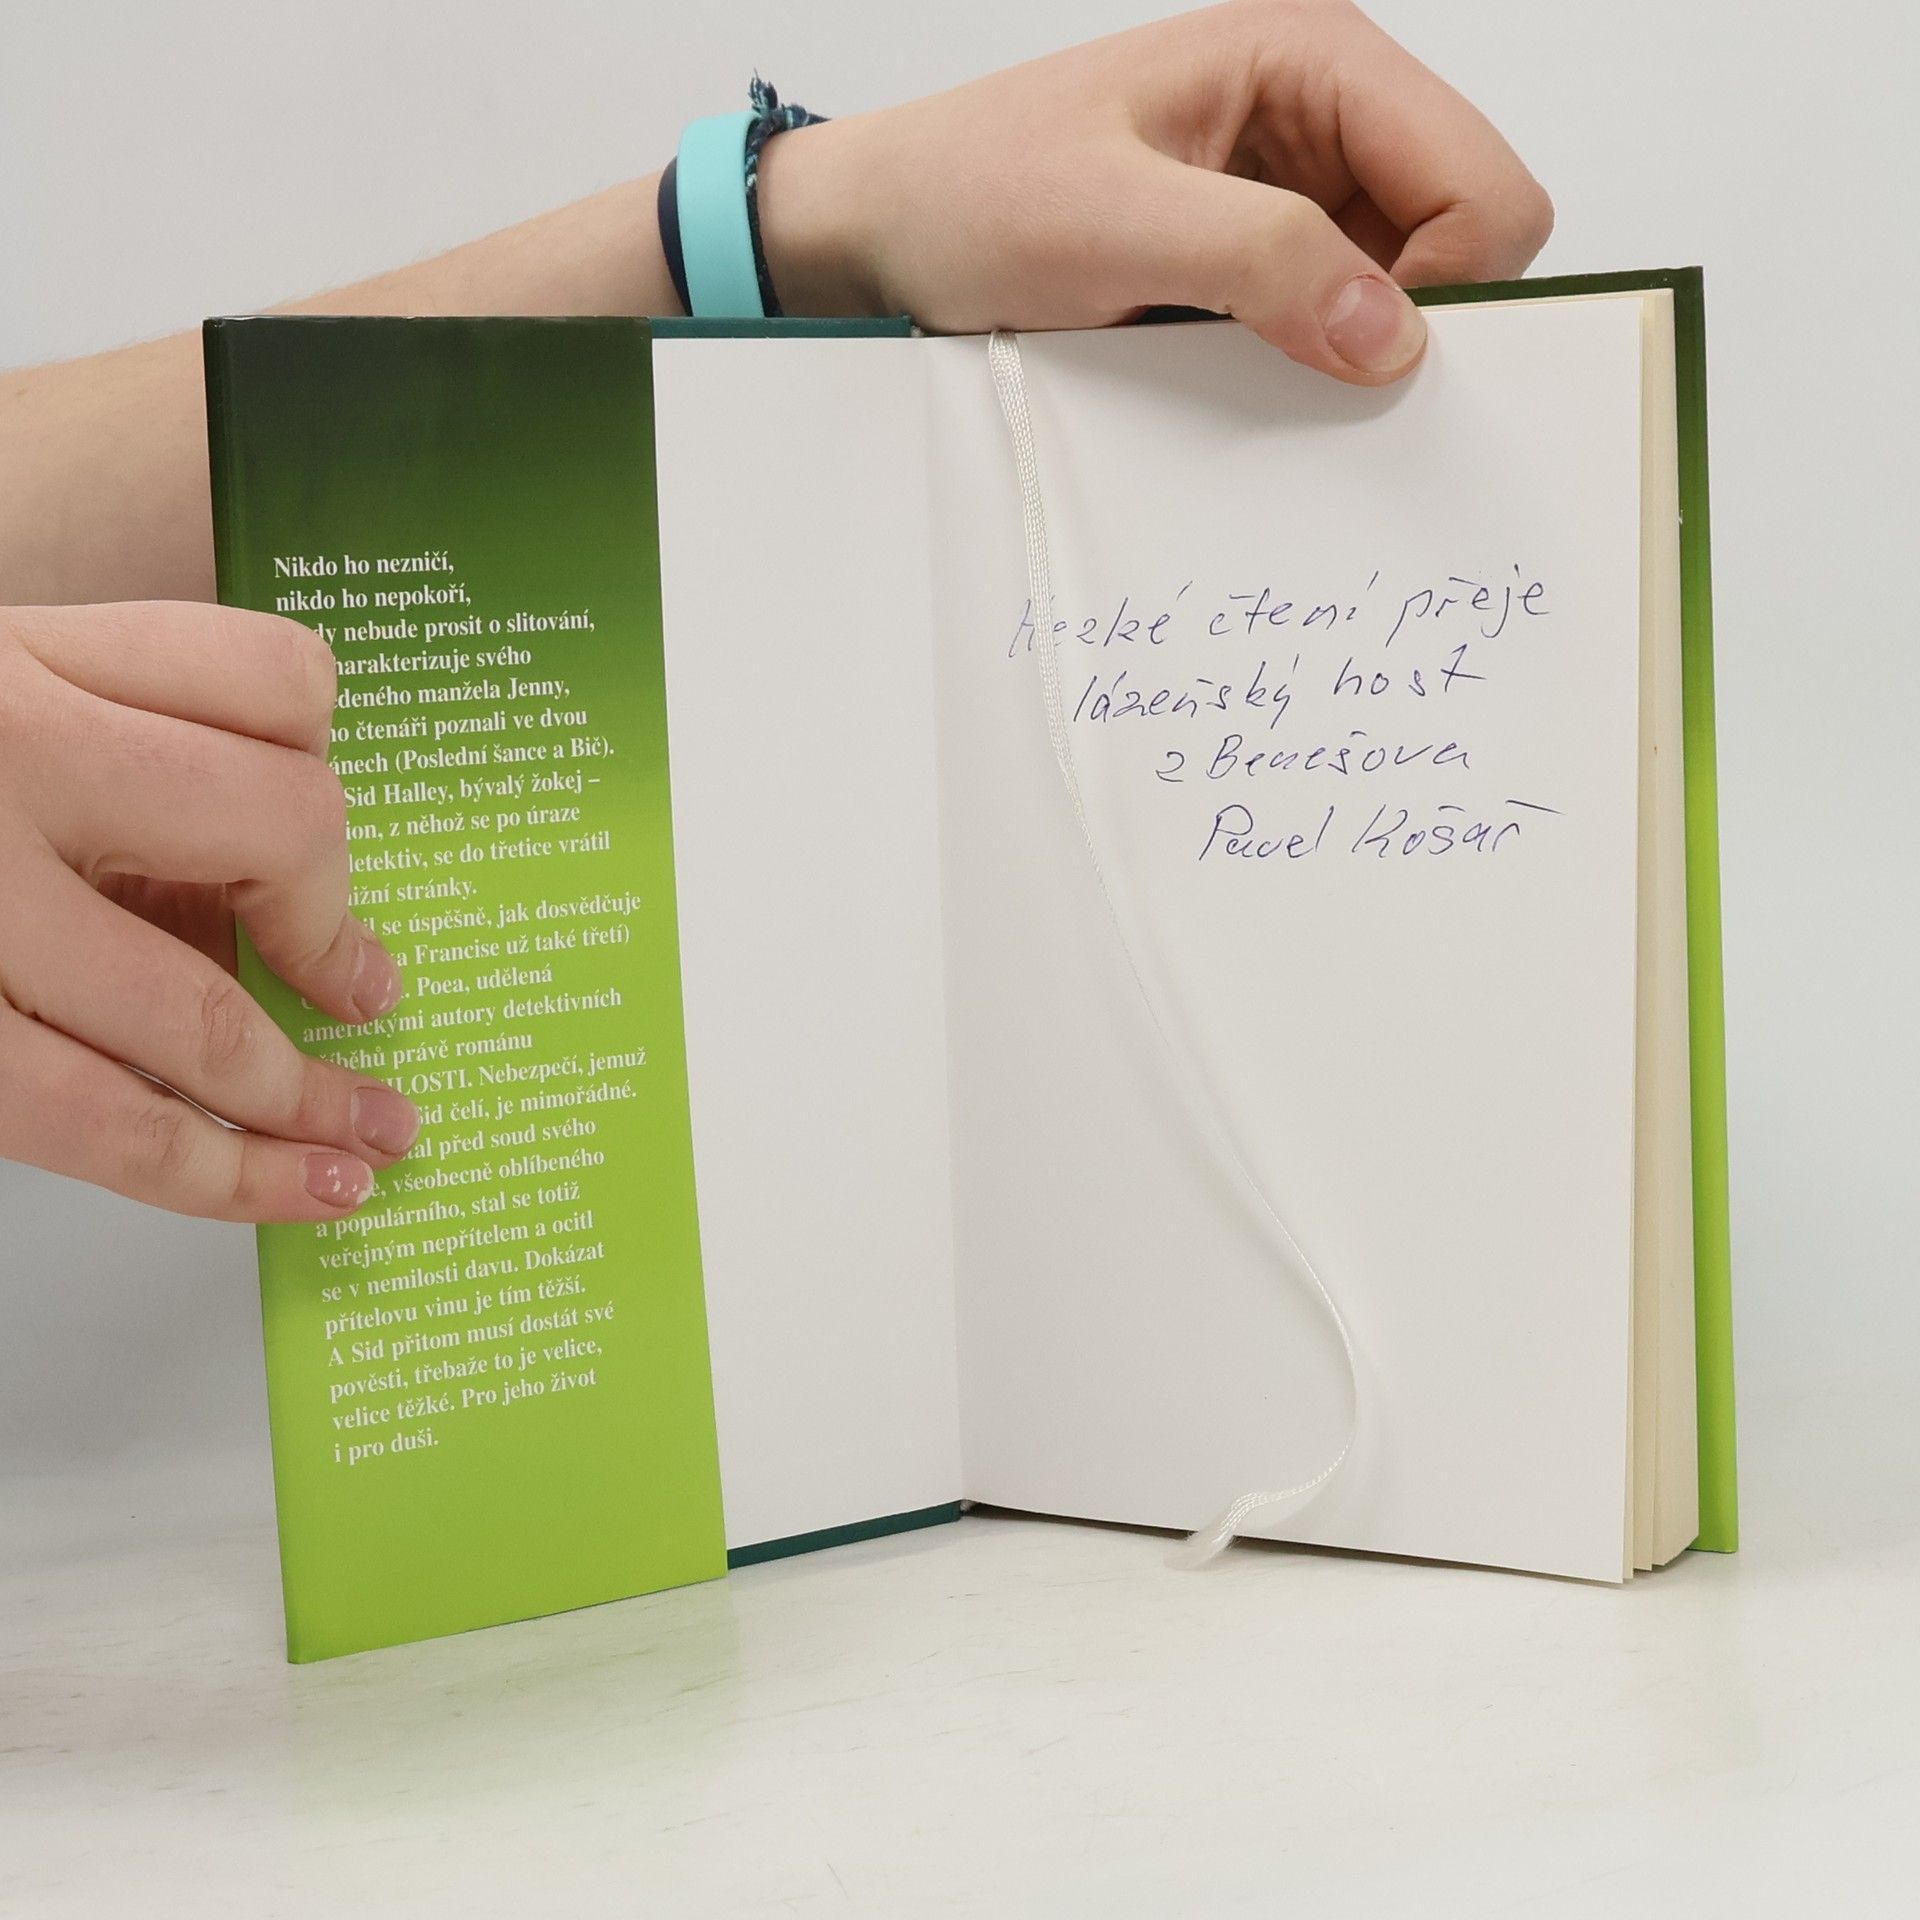 Nikdo ho nezničí,
nikdo ho nepokoří,
nebude prosit o slitování,
svého
manžela Jenny,
čtenáři poznali ve dvou
(Poslední šance a Bič).
Sid Halley, bývalý žokej –
z něhož se po úraze
se do třetice vrátil
stránky.
se úspěšně, jak dosvědčuje
Francise už také třetí)
Poea, udělená
americkými autory detektivních
právě románu
Nebezpečí, jemuž
Sid čelí, je mimořádné.
před soud svého
všeobecně oblíbeného
a populárního, stal se totiž
veřejným nepřítelem a ocitl
se v nemilosti davu. Dokázat
přítelovu vinu je tím těžší.
A Sid přitom musí dostát své
pověsti, třebaže to je velice,
velice těžké. Pro jeho život
i pro duši.
Hezké čtení přeje
lázeňský host
z Benešova
Pavel Košař